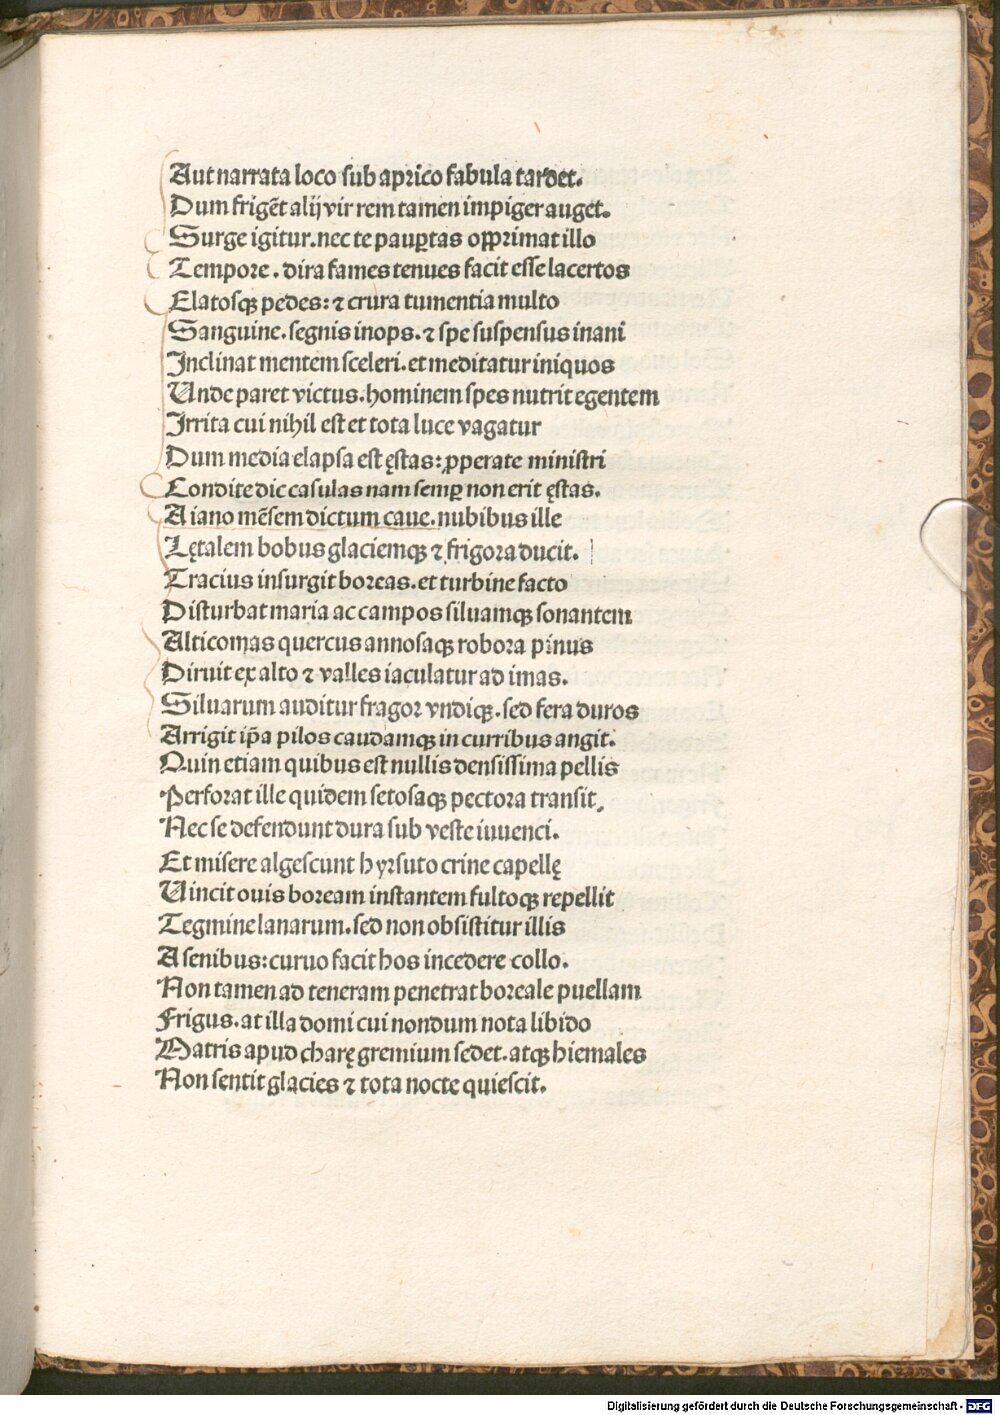 Aut narrata loco sub aprico fabula tardet.
Dum frigēt alij vir rem tamen impiger auget.
Surge igitur.nec te paup̱tas opp̱rimat illo
Tempore. dira fames tenues facit esse lacertos
Elatosqꝫ pedes: ⁊ crura tumentia multo
Sanguine. segnis inops. ⁊ spe suspensus inani
Inclinat mentem sceleri. et meditatur iniquos
Unde paret victus. hominem spes nutrit egentem
Irrita cui nihil est et tota luce vagatur
Dum media elapsa est ęstas: ꝓperate ministri
Condite dic casulas nam semꝑ non erit ęstas.
A iano mēsem dictum caue. nubibus ille
Lętalem bobus glaciemqꝫ ⁊ frigora ducit.
Tracius insurgit boreas. et turbine facto
Disturbat maria ac campos siluamqꝫ sonantem
Alticomas quercus annosaqꝫ robora pinus
Diruit ex alto ⁊ valles iaculatur ad imas.
Siluarum auditur fragor vndiqꝫ. sed fera duros
Arrigit ip̄a pilos caudamqꝫ in curribus angit.
Quin etiam quibus est nullis densissima pellis
Perforat ille quidem setosaqꝫ pectora transit.
Nec se defendunt dura sub veste iuuenci.
Et misere algescunt hyrsuto crine capellę
Uincit ouis boream instantem fultoqꝫ repellit
Tegmine lanarum. sed non obsistitur illis
A senibus: curuo facit hos incedere collo.
Non tamen ad teneram penetrat boreale puellam
Frigus. at illa domi cui nondum nota libido
Matris apud charę gremium sedet. atqꝫ hiemales
Non sentit glacies ⁊ tota nocte quiescit.
Digitalisierung gefördert durch die Deutsche Forschungsgemeinschaft - DFG